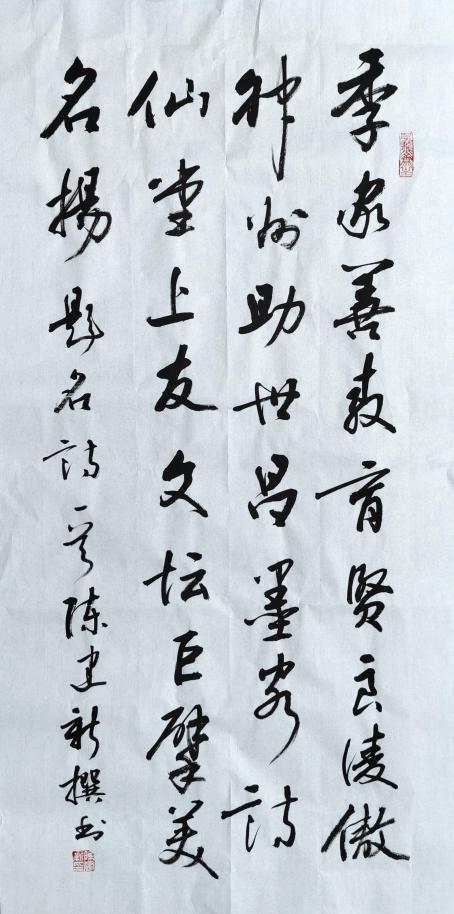 季家善教育贤良凌傲
神州助世昌墨客诗
仙堂上友文坛巨擘美
名扬题名诗一首陈建新撰书